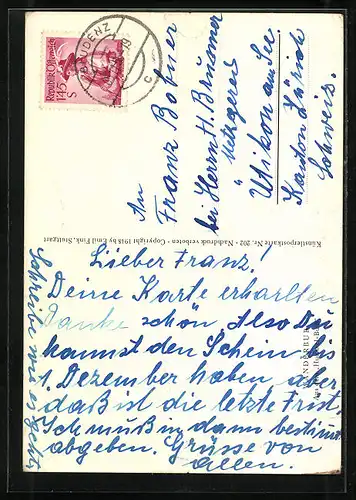 Republik Österreich
1.45
S
BLUDENZ
c
An
Franz Bobner
bei Herrn H. Brunner
Metzgerei
Utikon am See
Kanton Zürich
Schweiz.
Künstlerpostkarte Nr. 202 · Nachdruck verboten · Copyright 1918 by Emil Fink, Stuttgart
Lieber Franz!
Deine Karte erhallen
Danke schön. Also Du
kannst den Schein bis
1. Dezember haben aber
daß ist die letzte Frist.
Ich muß in dann bestimmt
abgeben. Grüsse von
allen.
Schreibe mir